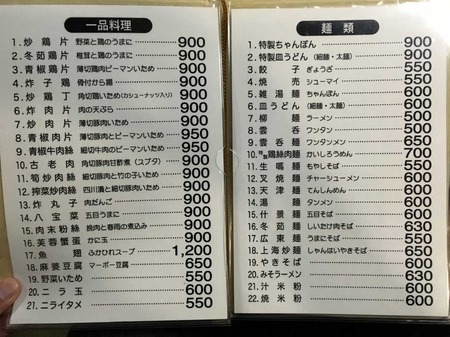 一品料理
1. 炒鶏片 野菜と鶏のうまに 900
2. 冬茹鶏片 椎茸と鶏のうまに 900
3. 青椒鶏片 薄切鶏肉ピーマンいため 900
4. 炸子鶏 骨付から揚 900
5. 炒鶏丁 角切鶏いため(カシューナッツ入り) 900
6. 炸肉片 肉の天ぷら 900
7. 炒肉片 薄切豚肉いため 900
8. 青椒肉片 薄切豚肉とピーマンいため 950
9. 青椒牛肉絲 細切牛肉のピーマンいため 950
10. 古老肉 角切豚肉甘酢煮(スブタ) 900
11. 筍炒肉絲 細切豚肉と竹の子いため 900
12. 搾菜炒肉絲 四川漬と細切豚肉いため 900
13. 炸丸子 肉だんご 900
14. 八宝菜 五目うまに 900
15. 肉末粉絲 挽肉と春雨の煮込み 900
16. 芙蓉蟹蛋 かに玉 900
17. 魚翅 ふかひれスープ 1,200
18. 麻婆豆腐 マーボー豆腐 650
19. 野菜いため 550
20. ニラ玉 600
21. ニライタメ 550
麺類
1. 特製ちゃんぽん 900
2. 特製皿うどん(細麺・太麺) 900
3. 餃子 ぎょうざ 550
4. 焼売 シューマイ 550
5. 雑湯麺 ちゃんぽん 650
6. 皿うどん(細麺・太麺) 650
7. 柳麺 ラーメン 500
8. 雲呑 ワンタン 500
9. 雲呑麺 ワンタンメン 650
10. 特製鶏絲肉麺 かいしろうめん 700
11. 生嗎麺 もやしそば 550
12. 叉焼麺 チャーシューメン 650
13. 天津麺 てんしんめん 650
14. 湯麺 タンメン 600
15. 什景麺 五目そば 650
16. 冬茹麺 しいたけ肉そば 630
17. 広東麺 うまにそば 550
18. 上海炒麺 しゃんはいやきそば 650
19. やきそば 600
20. みそラーメン 630
21. 汁米粉 600
22. 焼米粉 600